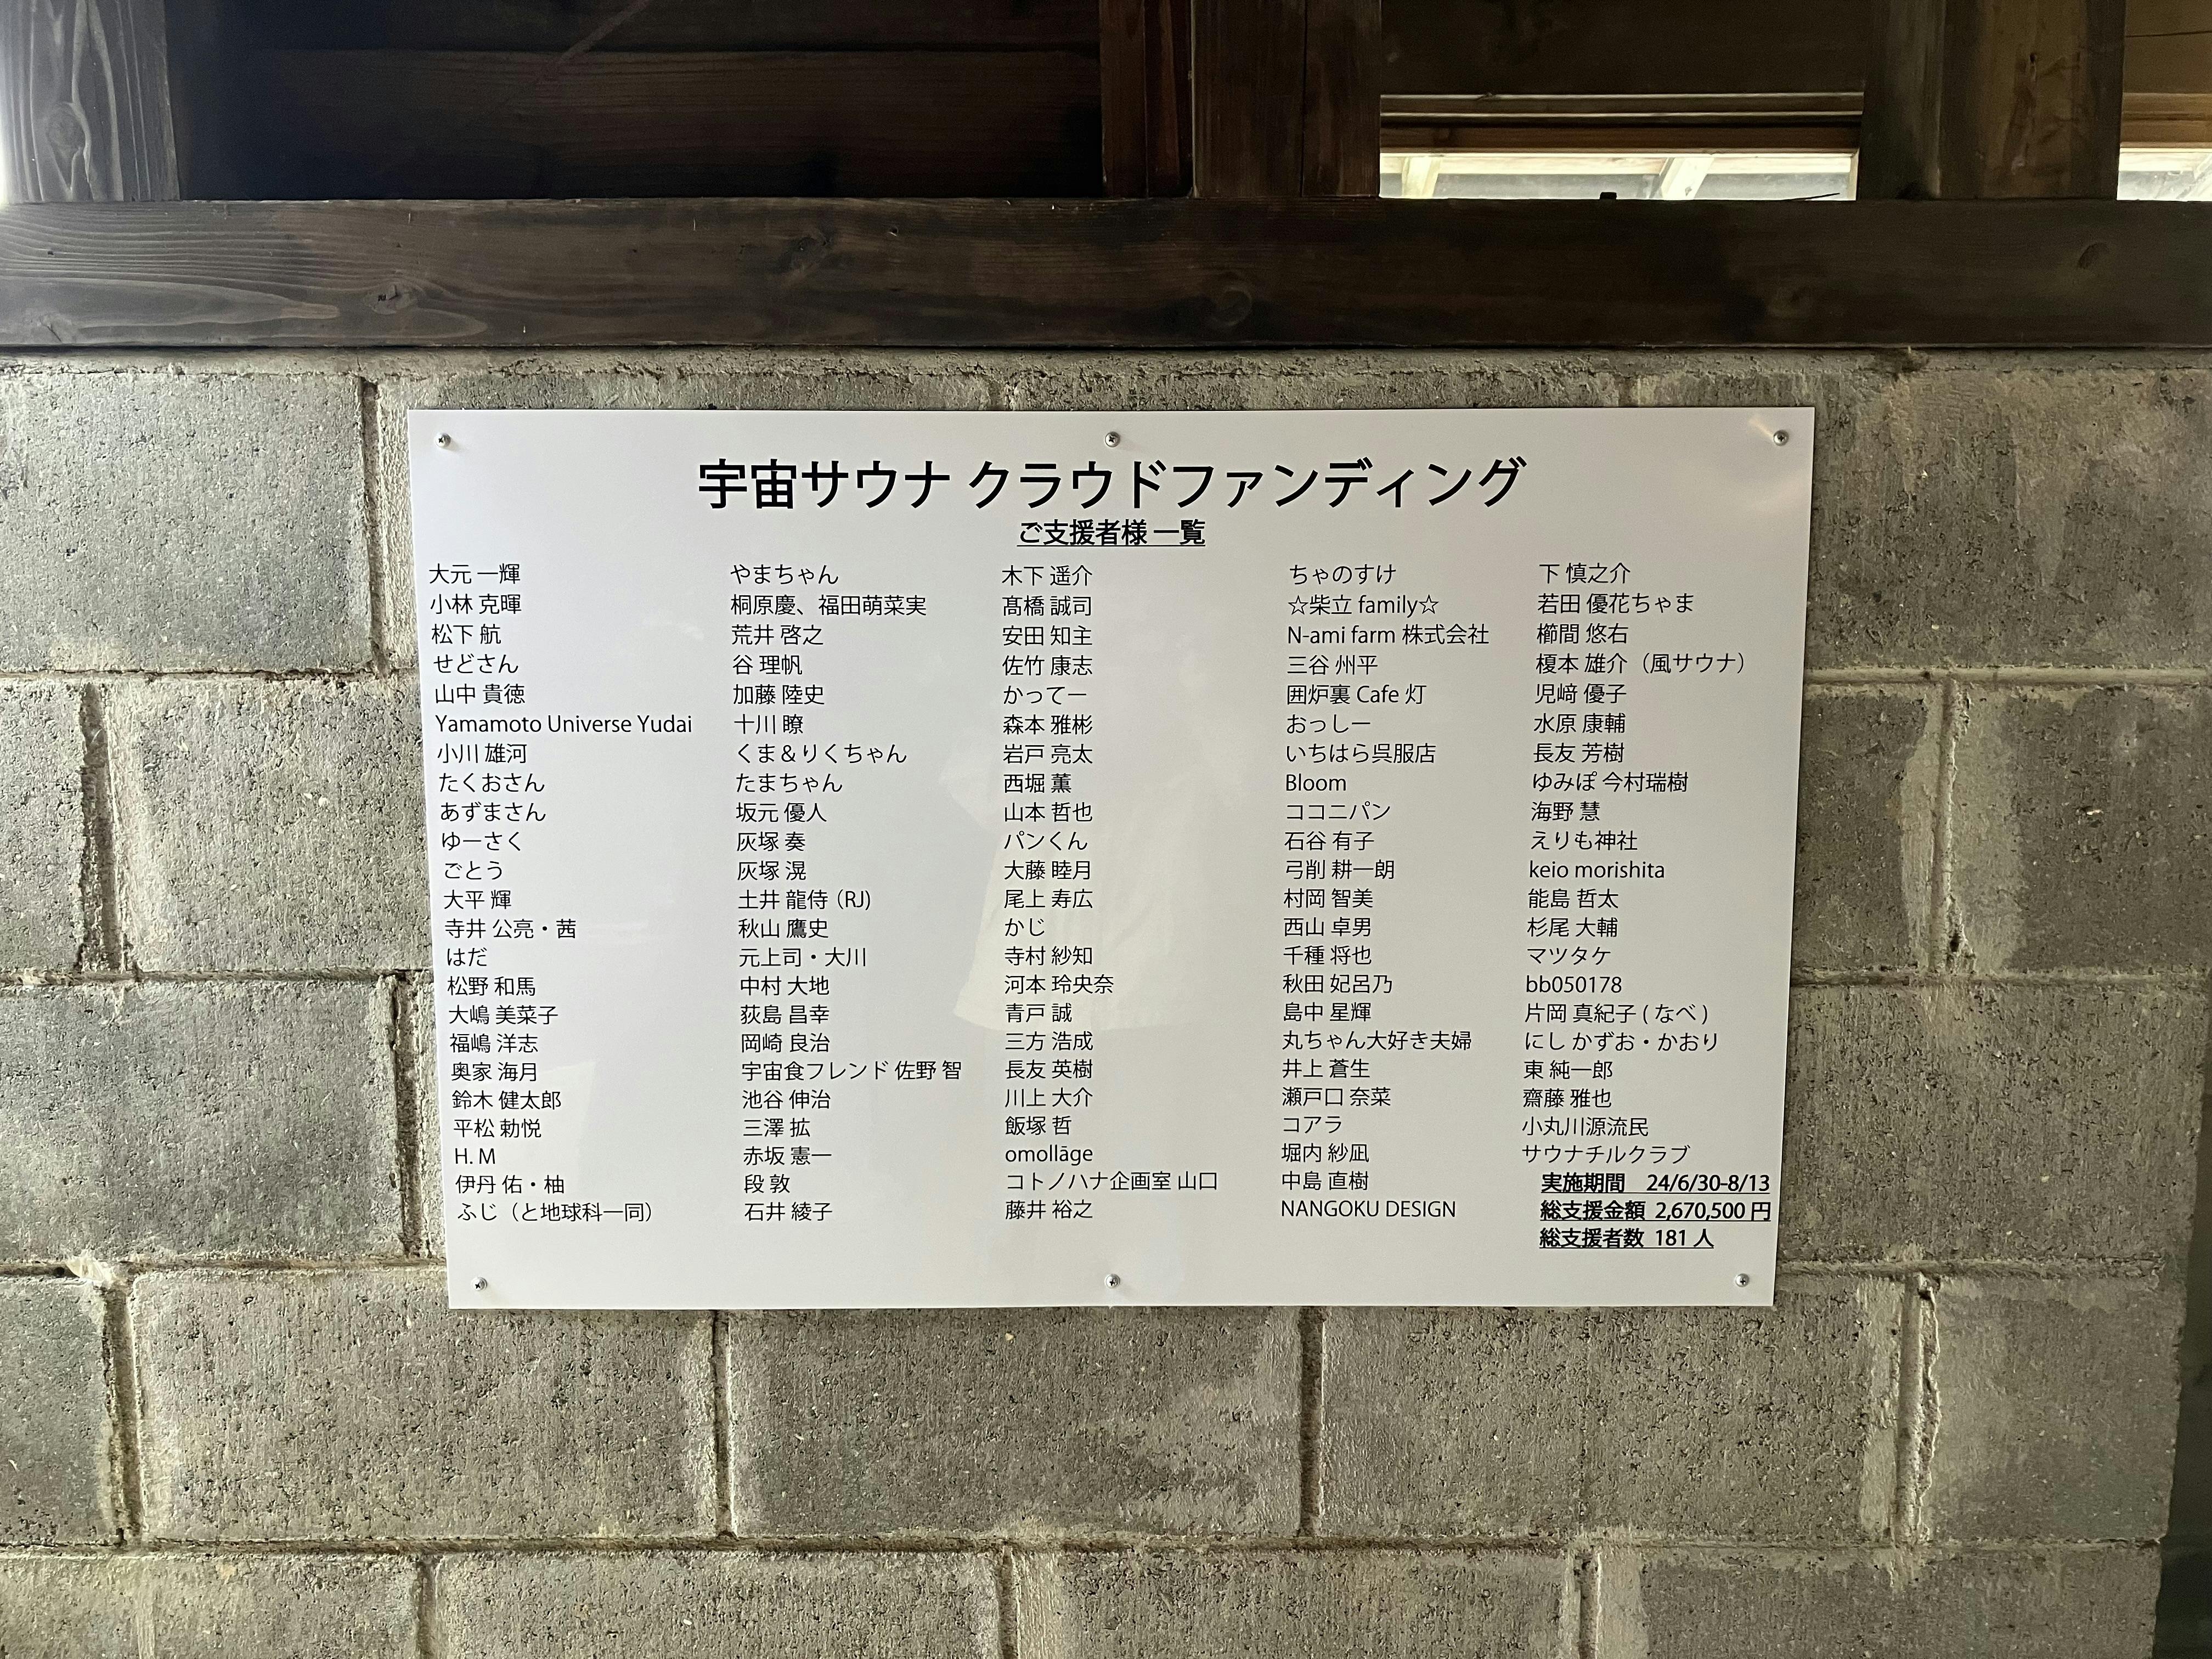 宇宙サウナ クラウドファンディング
ご支援者様 一覧
大元 一輝
小林 克暉
松下 航
せどさん
山中 貴徳
Yamamoto Universe Yudai
小川 雄河
たくおさん
あずまさん
ゆーさく
ごとう
大平 輝
寺井 公亮・茜
はだ
松野 和馬
大嶋 美菜子
福嶋 洋志
奥家 海月
鈴木 健太郎
平松 勅悦
H. M
伊丹 佑・柚
ふじ（と地球科一同）
やまちゃん
桐原慶、福田萌菜実
荒井 啓之
谷 理帆
加藤 陸史
十川 瞭
くま＆りくちゃん
たまちゃん
坂元 優人
灰塚 奏
灰塚 滉
土井 龍侍 (RJ)
秋山 鷹史
元上司・大川
中村 大地
荻島 昌幸
岡崎 良治
宇宙食フレンド 佐野 智
池谷 伸治
三澤 拡
赤坂 憲一
段 敦
石井 綾子
木下 遥介
髙橋 誠司
安田 知主
佐竹 康志
かってー
森本 雅彬
岩戸 亮太
西堀 薫
山本 哲也
パンくん
大藤 睦月
尾上 寿広
かじ
寺村 紗知
河本 玲央奈
青戸 誠
三方 浩成
長友 英樹
川上 大介
飯塚 哲
omollāge
コトノハナ企画室 山口
藤井 裕之
ちゃのすけ
☆柴立 family☆
N-ami farm 株式会社
三谷 州平
囲炉裏 Cafe 灯
おっしー
いちはら呉服店
Bloom
ココニパン
石谷 有子
弓削 耕一朗
村岡 智美
西山 卓男
千種 将也
秋田 妃呂乃
島中 星輝
丸ちゃん大好き夫婦
井上 蒼生
瀬戸口 奈菜
コアラ
堀内 紗凪
中島 直樹
NANGOKU DESIGN
下 慎之介
若田 優花ちゃま
櫛間 悠右
榎本 雄介（風サウナ）
児﨑 優子
水原 康輔
長友 芳樹
ゆみぽ 今村瑞樹
海野 慧
えりも神社
keio morishita
能島 哲太
杉尾 大輔
マツタケ
bb050178
片岡 真紀子 ( なべ )
にし かずお・かおり
東 純一郎
齋藤 雅也
小丸川源流民
サウナチルクラブ
実施期間 24/6/30-8/13
総支援金額 2,670,500 円
総支援者数 181 人